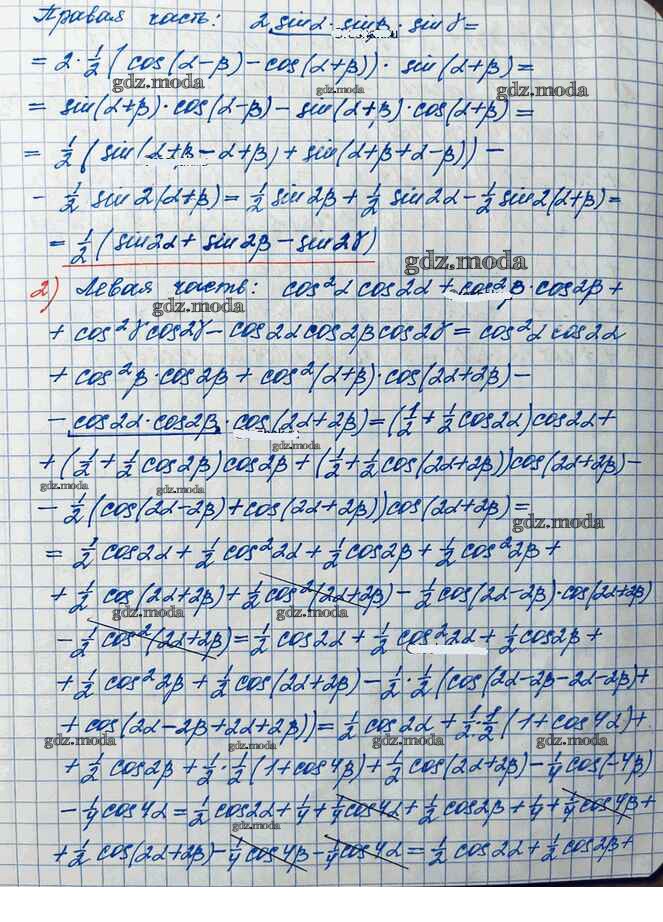 Правая часть: 2 sinα · sinβ · sinγ =
= 2 · 1/2 (cos(α-β) - cos(α+β)) · sin(α+β) =
gdz.moda gdz.moda
= sin(α+β) · cos(α-β) - sin(α+β) · cos(α+β) =
gdz.moda
= 1/2 (sin(α+β-α+β) + sin(α+β+α-β)) -
- 1/2 sin2(α+β) = 1/2 sin2β + 1/2 sin2α - 1/2 sin2(α+β) =
= 1/2 (sin2α + sin2β - sin2γ)
gdz.moda
2) Левая часть: cos²α cos2α + cos²β · cos2β +
gdz.moda gdz.moda
+ cos²γ cos2γ - cos2α cos2β cos2γ = cos²α cos2α
+ cos²β · cos2β + cos²(α+β) · cos(2α+2β) -
- cos2α · cos2β · cos(2α+2β) = (1/2 + 1/2 cos2α) cos2α +
gdz.moda
+ (1/2 + 1/2 cos2β) cos2β + (1/2 + 1/2 cos(2α+2β)) cos(2α+2β) -
gdz.moda gdz.moda
- 1/2 (cos(2α-2β) + cos(2α+2β)) cos(2α+2β) =
gdz.moda
= 1/2 cos2α + 1/2 cos²2α + 1/2 cos2β + 1/2 cos²2β +
+ 1/2 cos(2α+2β) + 1/2 cos²(2α+2β) - 1/2 cos(2α-2β) · cos(2α+2β)
gdz.moda gdz.moda
- 1/2 cos²(2α+2β) = 1/2 cos2α + 1/2 cos²2α + 1/2 cos2β +
+ 1/2 cos²2β + 1/2 cos(2α+2β) - 1/2 · 1/2 (cos(2α-2β-2α-2β) +
+ cos(2α-2β+2α+2β)) = 1/2 cos2α + 1/2 · 1/2 (1 + cos4α) +
gdz.moda gdz.moda gdz.moda
+ 1/2 cos2β + 1/2 · 1/2 (1 + cos4β) + 1/2 cos(2α+2β) - 1/4 cos(-4β)
- 1/4 cos4α = 1/2 cos2α + 1/4 + 1/4 cos4α + 1/2 cos2β + 1/4 + 1/4 cos4β +
gdz.moda
+ 1/2 cos(2α+2β) - 1/4 cos4β - 1/4 cos4α = 1/2 cos2α + 1/2 cos2β +